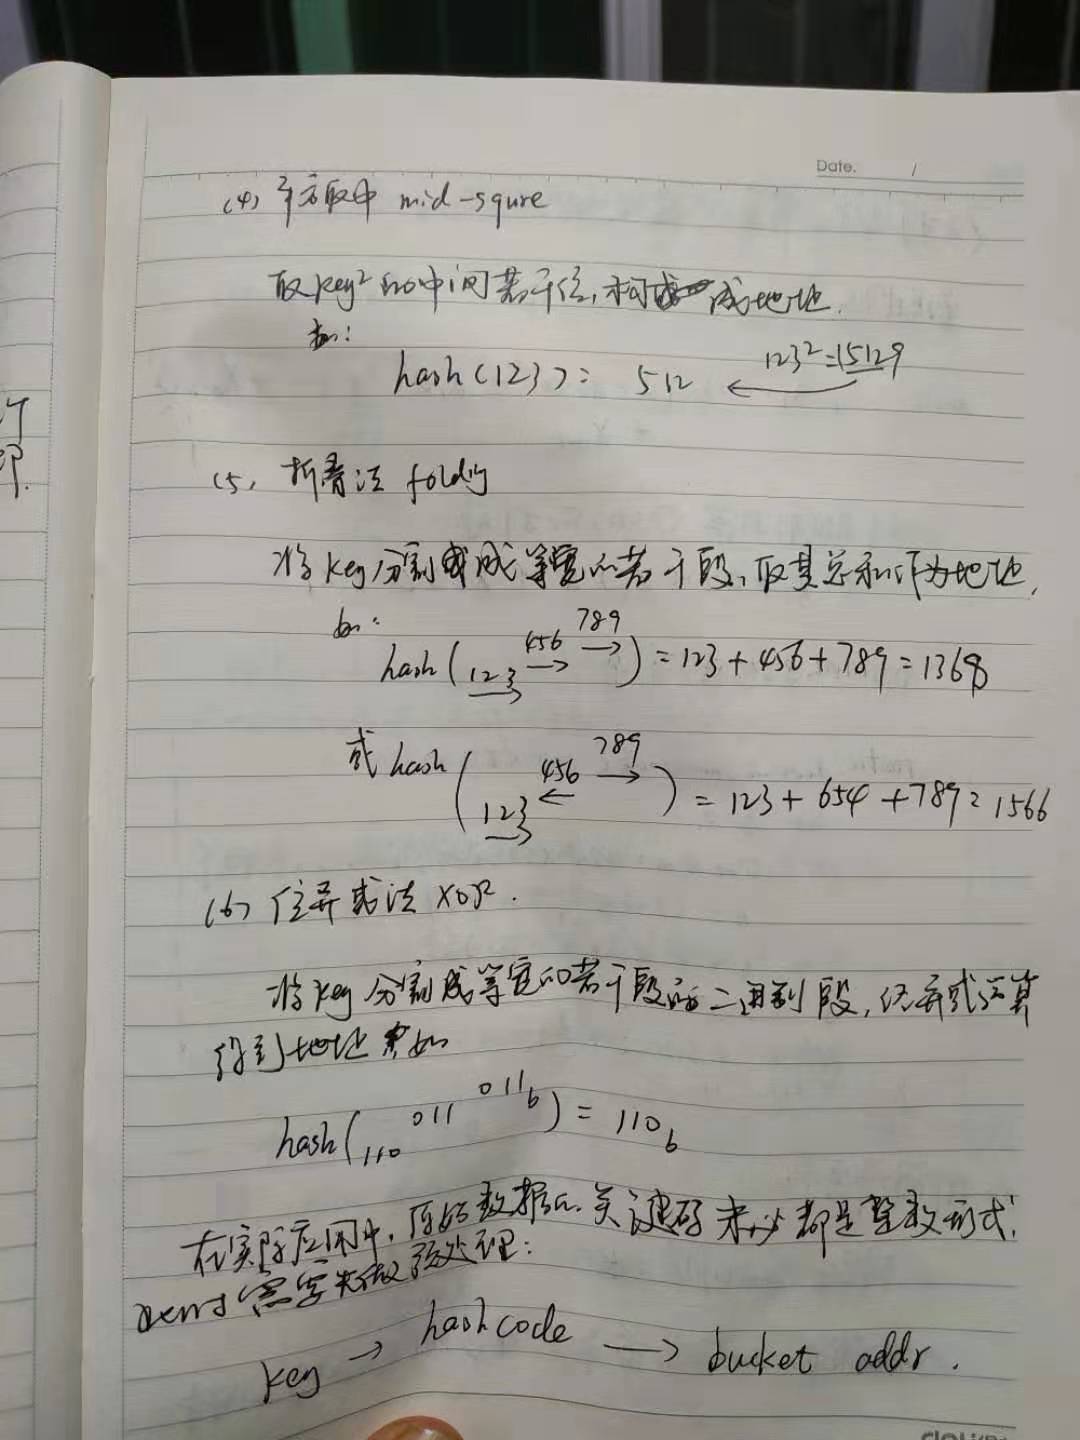 Date. /
(4) 平方取中 mid-squre
取key²的中间若干位,构成地址.
如:
hash(123)= 512 123²=15129
(5) 折叠法 folding
将key分割成等宽的若干段,取其总和作为地址.
如:
hash(123 456 789)=123+456+789=1368
或hash(123 456 789)=123+654+789=1566
(6) 位异或法 XOR.
将key分割成等宽的若干段的二进制段,经异或运算
得到地址 如
hash(110 011 011b)=110b
在实际应用中,原始数据的关键码未必都是整数形式,
这时需要先做预处理:
key → hashcode → bucket addr.